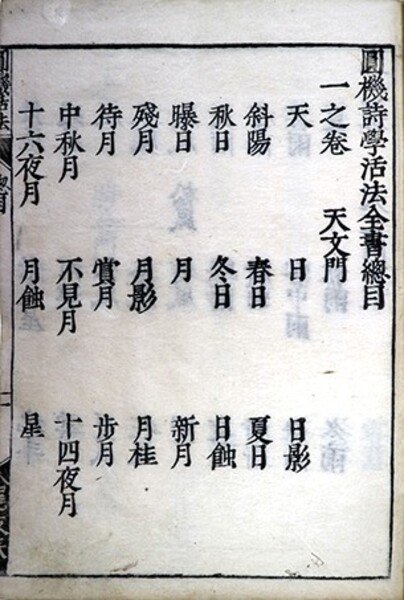 圓機詩學活法全書總目
一之卷 天文門
天 日 日影
斜陽 春日 夏日
秋日 冬日 日蝕
曝日 月 新月
殘月 月影 月桂
待月 賞月 步月
中秋月 不見月 十四夜月
十六夜月 月蝕 星
圓機活法 總目